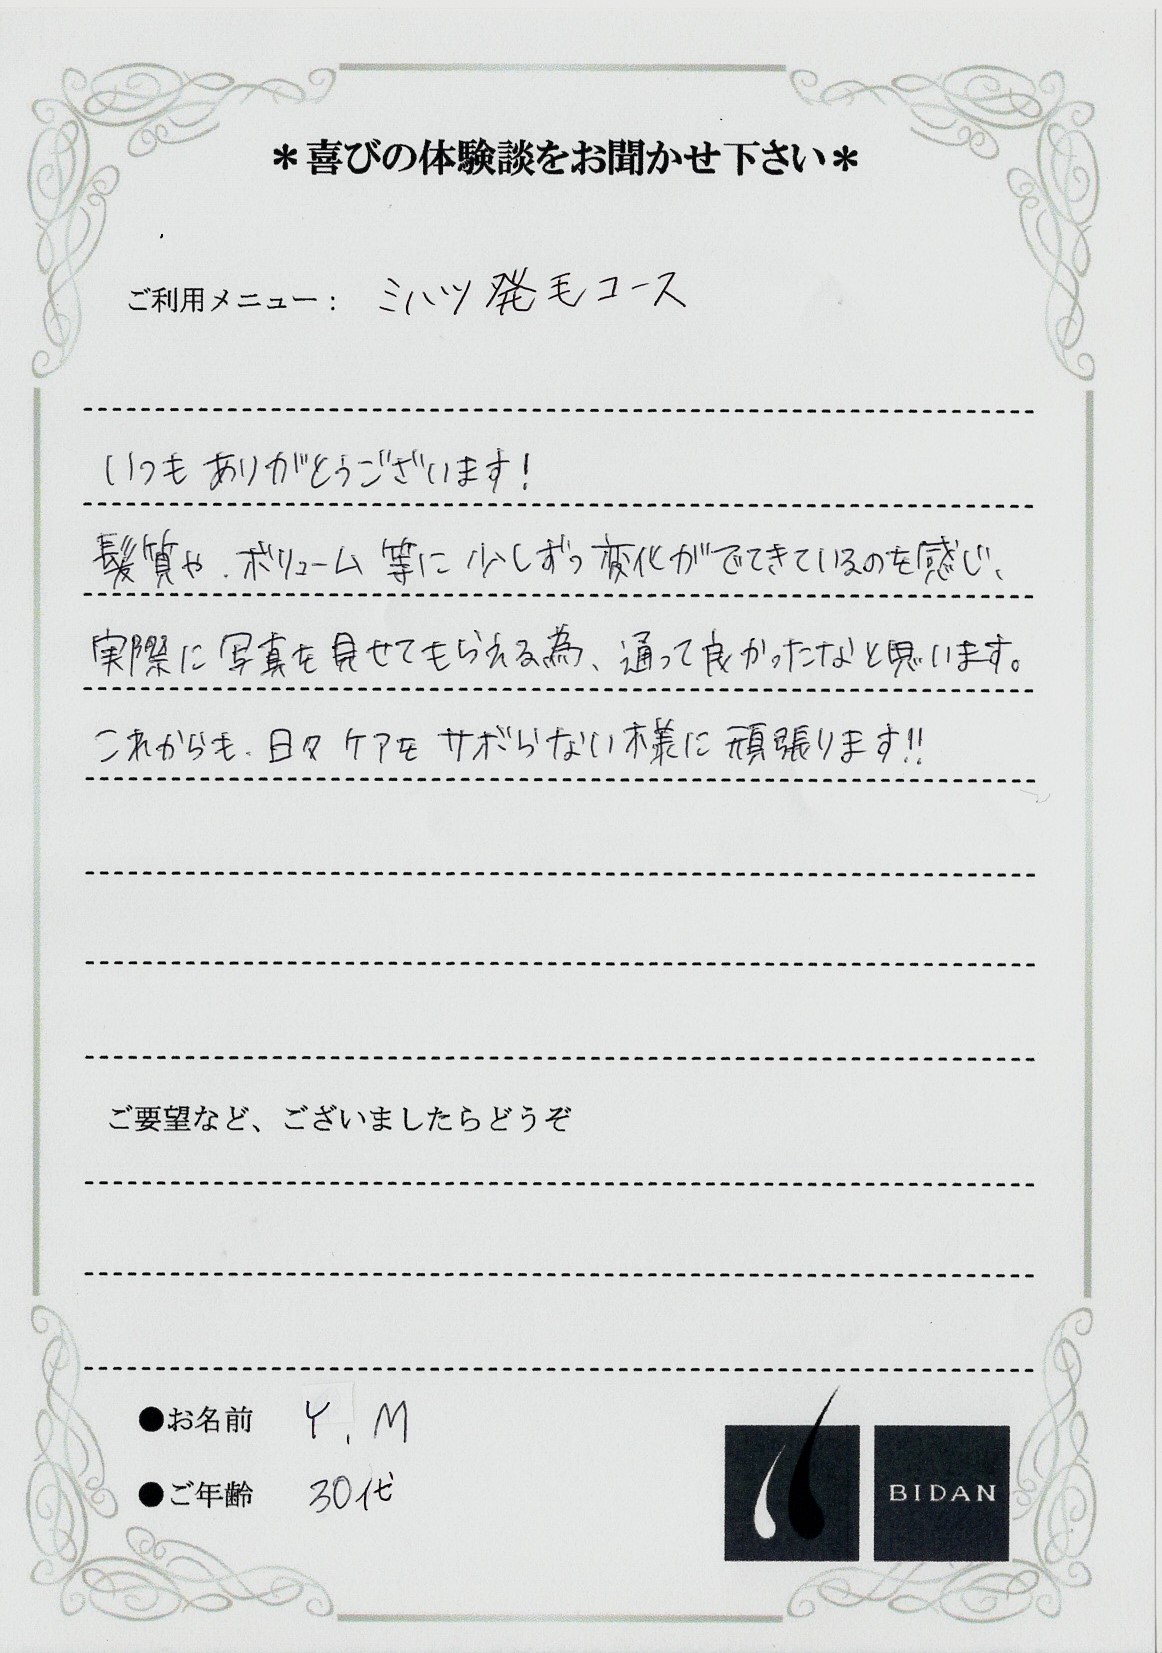 ＊喜びの体験談をお聞かせ下さい＊
ご利用メニュー： ミハツ発毛コース
いつもありがとうございます！
髪質や、ボリューム等に少しずつ変化がでてきているのを感じ、
実際に写真を見せてもらえる為、通って良かったなと思います。
これからも、日々ケアをサボらない様に頑張ります!!
ご要望など、ございましたらどうぞ
●お名前 Y.M
●ご年齢 30代
BIDAN